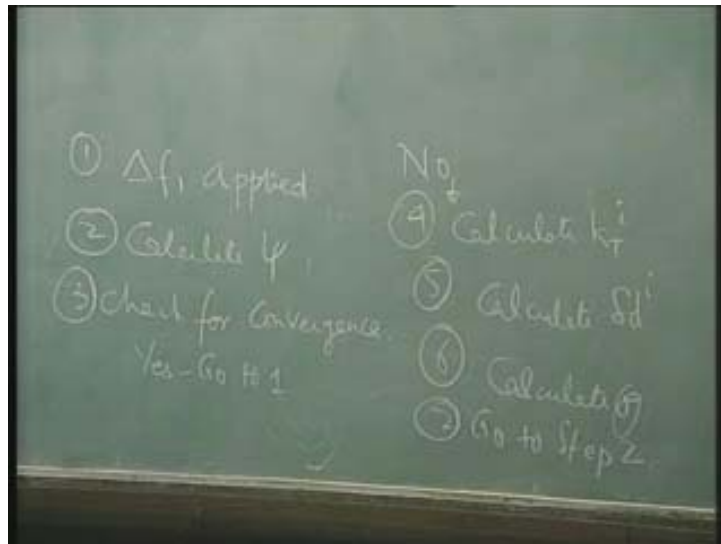 ① Δf₁ applied
② Calculate ψ.
③ Check for convergence.
Yes - Go to 1
No
④ Calculate k_T^i
⑤ Calculate δd^i
⑥ Calculate
⑦ Go to Step 2